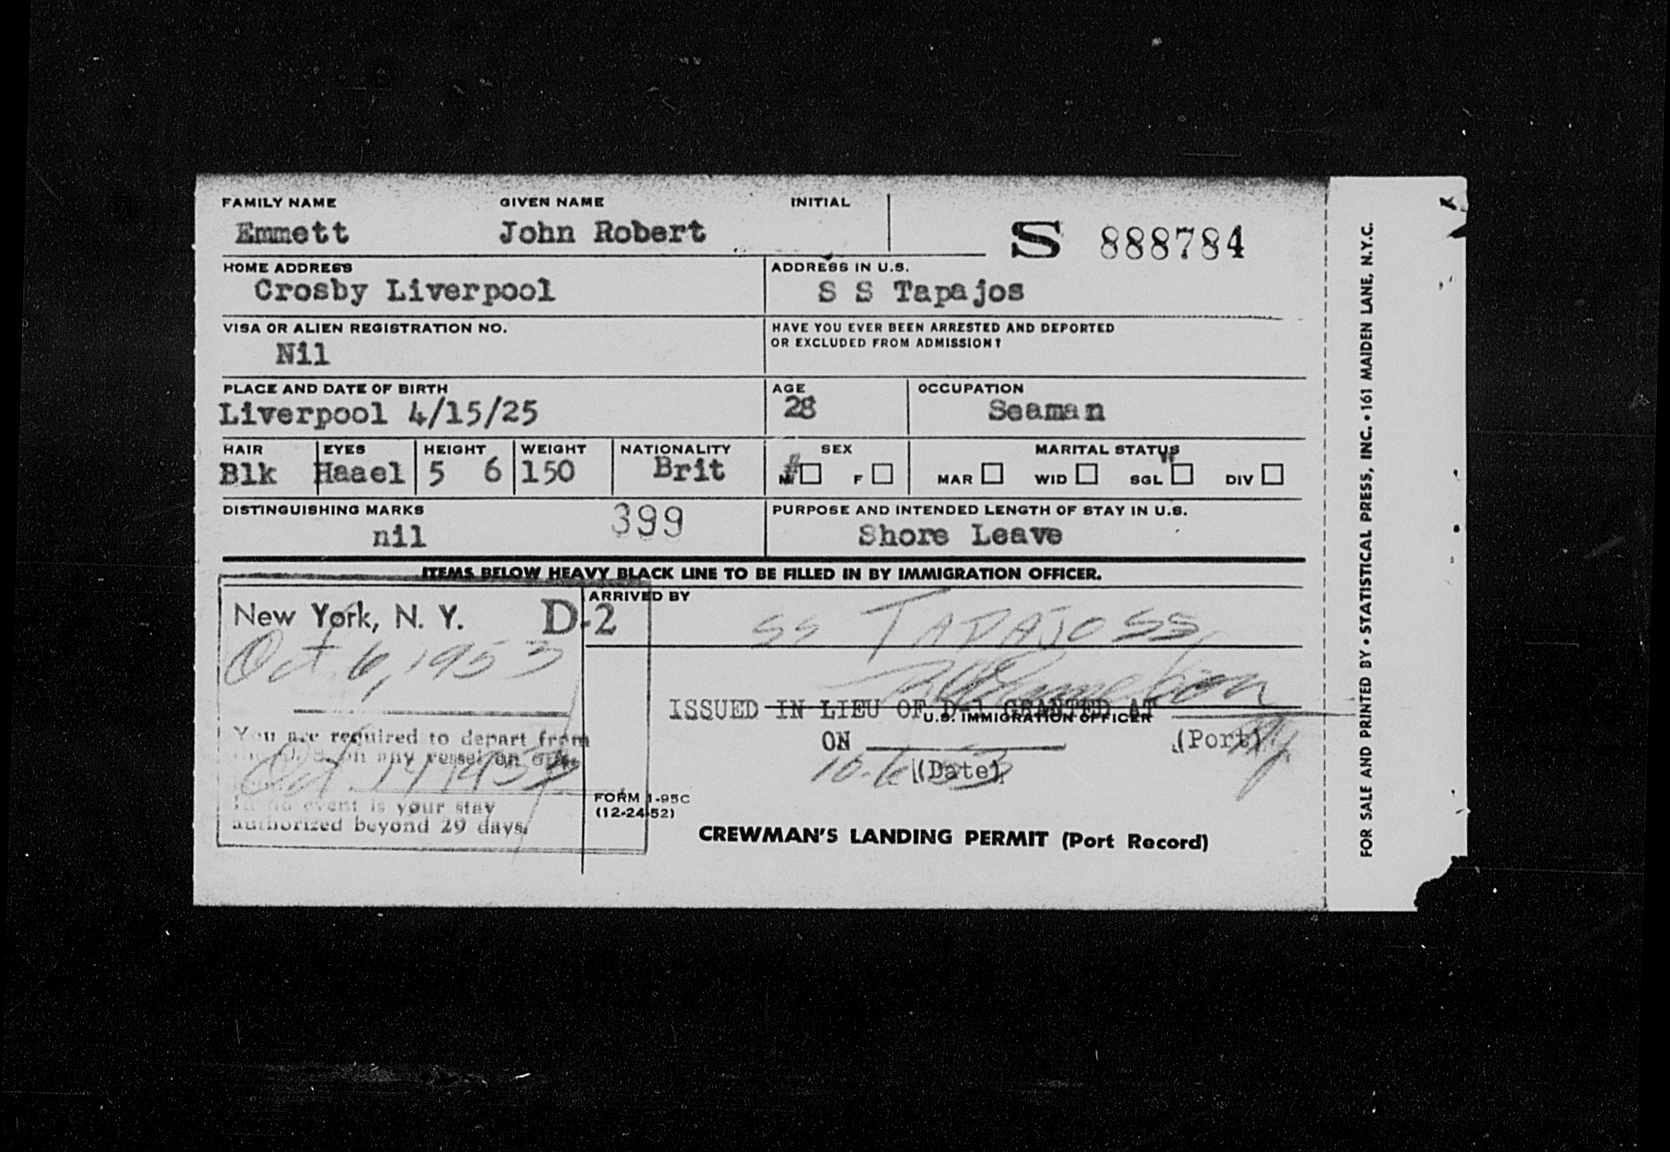 FAMILY NAME GIVEN NAME INITIAL
Emmett John Robert S 888784
HOME ADDRESS ADDRESS IN U.S.
Crosby Liverpool S S Tapajos
VISA OR ALIEN REGISTRATION NO. HAVE YOU EVER BEEN ARRESTED AND DEPORTED
OR EXCLUDED FROM ADMISSION?
Nil
PLACE AND DATE OF BIRTH AGE OCCUPATION
Liverpool 4/15/25 28 Seaman
HAIR EYES HEIGHT WEIGHT NATIONALITY SEX MARITAL STATUS
Blk Haael 5 6 150 Brit M F MAR WID SGL DIV
DISTINGUISHING MARKS 399 PURPOSE AND INTENDED LENGTH OF STAY IN U.S.
nil Shore Leave
ITEMS BELOW HEAVY BLACK LINE TO BE FILLED IN BY IMMIGRATION OFFICER.
ARRIVED BY
New York, N. Y. D-2 SS TAPAJOSS
Oct 6, 1953
ISSUED IN LIEU OF D-1 GRANTED AT
U.S. IMMIGRATION OFFICER
You are required to depart from
ON (Port) NY
on any vessel on or
Oct 14 1953
10-6-53 (Date)
In no event is your stay
authorized beyond 29 days.
FORM I-95C
(12-24-52)
CREWMAN'S LANDING PERMIT (Port Record)
FOR SALE AND PRINTED BY • STATISTICAL PRESS, INC. • 161 MAIDEN LANE, N.Y.C.